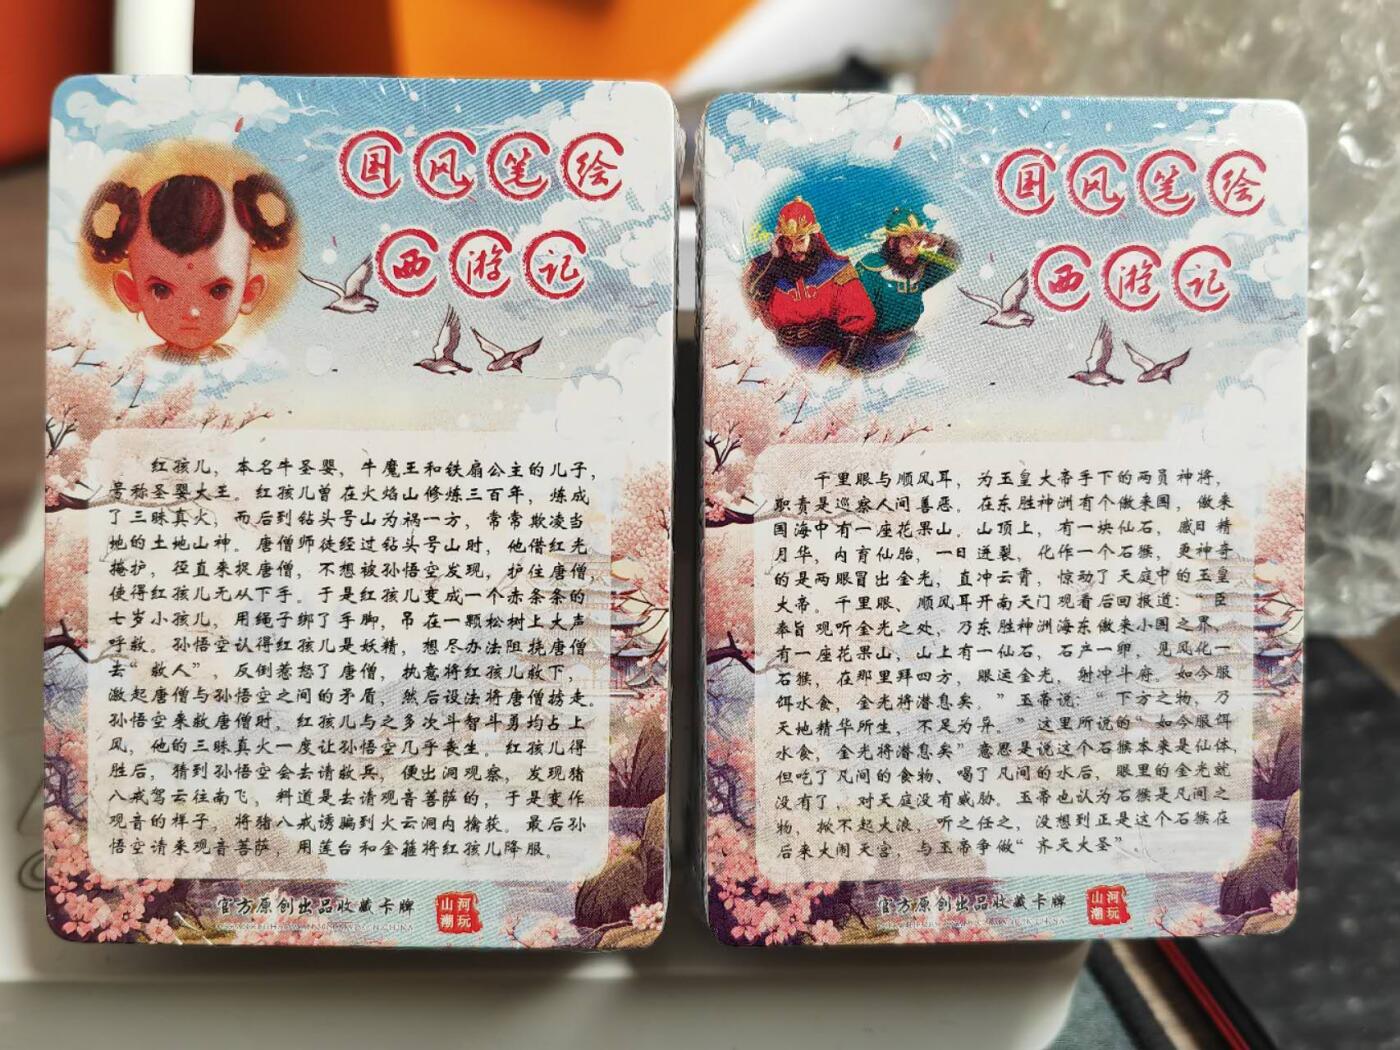 国风笔绘
西游记
红孩儿，本名牛圣婴，牛魔王和铁扇公主的儿子，
号称圣婴大王。红孩儿曾在火焰山修炼三百年，炼成
了三昧真火，而后到钻头号山为祸一方，常常欺凌当
地的土地山神。唐僧师徒经过钻头号山时，他借红光
掩护，径直来捉唐僧，不想被孙悟空发现，护住唐僧，
使得红孩儿无从下手。于是红孩儿变成一个赤条条的
七岁小孩儿，用绳子绑了手脚，吊在一颗松树上大声
呼救。孙悟空认得红孩儿是妖精，想尽办法阻挠唐僧
去“救人”，反倒惹怒了唐僧，执意将红孩儿救下，
激起唐僧与孙悟空之间的矛盾，然后设法将唐僧掳走。
孙悟空来救唐僧时，红孩儿与之多次斗智斗勇均占上
风，他的三昧真火一度让孙悟空几乎丧生。红孩儿得
胜后，猜到孙悟空会去请救兵，便出洞观察，发现猪
八戒驾云往南飞，料道是去请观音菩萨的，于是变作
观音的样子，将猪八戒诱骗到火云洞内擒获。最后孙
悟空请来观音菩萨，用莲台和金箍将红孩儿降服。
官方原创出品收藏卡牌
山河
潮玩
国风笔绘
西游记
千里眼与顺风耳，为玉皇大帝手下的两员神将，
职责是巡察人间善恶。在东胜神洲有个傲来国，傲来
国海中有一座花果山。山顶上，有一块仙石，感日精
月华，内育仙胎，一日迸裂，化作一个石猴，更神奇
的是两眼冒出金光，直冲云霄，惊动了天庭中的玉皇
大帝。千里眼、顺风耳开南天门观看后回报道：“臣
奉旨观听金光之处，乃东胜神洲海东傲来小国之界，
有一座花果山，山上有一仙石，石产一卵，见风化一
石猴，在那里拜四方，眼运金光，射冲斗府。如今服
饵水食，金光将潜息矣。”玉帝说：“下方之物，乃
天地精华所生，不足为异。”这里所说的“如今服饵
水食，金光将潜息矣”意思是说这个石猴本来是仙体，
但吃了凡间的食物、喝了凡间的水后，眼里的金光就
没有了，对天庭没有威胁。玉帝也认为石猴是凡间之
物，掀不起大浪，听之任之，没想到正是这个石猴在
后来大闹天宫，与玉帝争做“齐天大圣”。
官方原创出品收藏卡牌
山河
潮玩